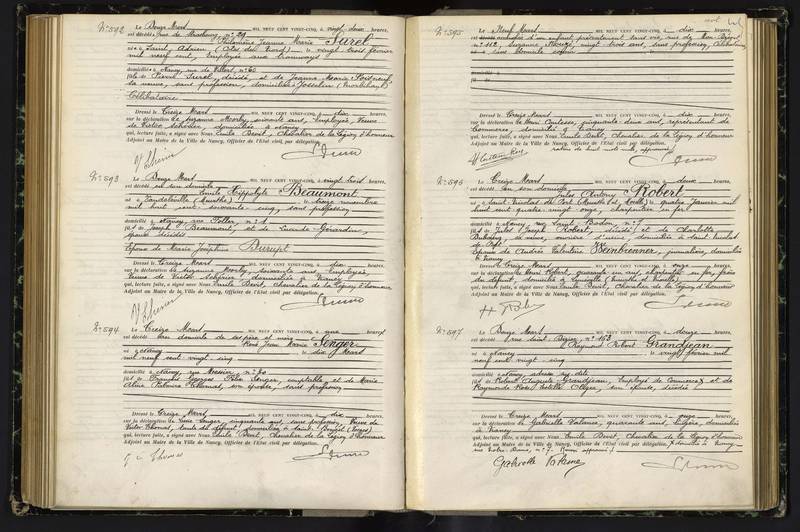 N° 592
Le Douze Mars MIL NEUF CENT VINGT-CINQ, à vingt deux heures,
est décédé rue de Strasbourg, n° 29
Jeanne Marie Surel
né à Saint Adrien (Côtes du Nord) le vingt trois février
mil neuf cent, employée aux tramways
domiciliée à Nancy, rue de n° 60
fille de Pierre Surel, décédé, et de Jeanne Marie
sa veuve, sans profession, domiciliée à Josselin (Morbihan)
Célibataire
Dressé le Treize Mars MIL NEUF CENT VINGT-CINQ, à dix heures,
sur la déclaration de Suzanne soixante ans, employée, Veuve
de Victor domiciliée à Nancy
qui, lecture faite, a signé avec Nous, Emile Chevalier de la Légion d'honneur
Adjoint au Maire de la Ville de Nancy, Officier de l'Etat civil par délégation.
N° 593
Le Douze Mars MIL NEUF CENT VINGT-CINQ, à vingt trois heures,
est décédé en son domicile
Emile Hippolyte Beaumont
né à (Meurthe) le treize novembre
mil huit cent soixante cinq, sans profession
domicilié à Nancy, rue n° 1
fils de Joseph Beaumont, et de Lucinde Gérardin,
époux décédés
Epoux de Marie Joséphine Durupt
Dressé le Treize Mars MIL NEUF CENT VINGT-CINQ, à dix heures,
sur la déclaration de Suzanne soixante ans, employée,
Veuve de Victor domiciliée à Nancy
qui, lecture faite, a signé avec Nous, Emile Chevalier de la Légion d'honneur
Adjoint au Maire de la Ville de Nancy, Officier de l'Etat civil par délégation.
N° 594
Le Treize Mars MIL NEUF CENT VINGT-CINQ, à une heure
est décédé au domicile de ses père et mère
René Jean Marie Senger
né à Nancy le dix Mars
mil neuf cent vingt cinq
domicilié à Nancy, rue Messier, n° 20
fils de François Georges Senger, comptable, et de Marie
Aline Thomas, son épouse, sans profession
Dressé le Treize Mars MIL NEUF CENT VINGT-CINQ, à dix heures,
sur la déclaration de Senger, cinquante ans, sans profession, Veuve de
Victor Thomas, tante du défunt, domiciliée à Saint (Vosges)
qui, lecture faite, a signé avec Nous, Emile Chevalier de la Légion d'honneur
Adjoint au Maire de la Ville de Nancy, Officier de l'Etat civil par délégation.
N° 595
Le Neuf Mars MIL NEUF CENT VINGT-CINQ, à dix heures,
d'un enfant présentement sans vie, rue de Mon Désert
n° 112, Suzanne vingt trois ans, sans profession, célibataire
domicilié à
Dressé le Treize Mars MIL NEUF CENT VINGT-CINQ, à dix heures,
sur la déclaration de Henri cinquante deux ans, représentant de
Commerce, domicilié à Nancy
qui, lecture faite, a signé avec Nous, Emile Chevalier de la Légion d'honneur
Adjoint au Maire de la Ville de Nancy, Officier de l'Etat civil par délégation.
N° 596
Le Treize Mars MIL NEUF CENT VINGT-CINQ, à deux heures,
est décédé en son domicile
Jules Antony Robert
né à Saint Nicolas de Port (Meurthe et Moselle) le quatre Janvier mil
huit cent quatre vingt onze, charpentier en fer
domicilié à Nancy, rue Saint Bodon, n° 7
fils de Jules Joseph Robert, décédé, et de Charlotte
sa veuve, ouvrière d'usine, domiciliée à Saint Nicolas
de Port
Epoux de Andrée Valentine Weinbrenner, journalière, domiciliée
à Nancy
Dressé le Treize Mars MIL NEUF CENT VINGT-CINQ, à onze heures,
sur la déclaration de Henri Robert, quarante un ans, charpentier en fer, frère
du défunt, domicilié à (Meurthe et Moselle)
qui, lecture faite, a signé avec Nous, Emile Chevalier de la Légion d'honneur
Adjoint au Maire de la Ville de Nancy, Officier de l'Etat civil par délégation.
N° 597
Le Douze Mars MIL NEUF CENT VINGT-CINQ, à douze heures,
est décédé rue Saint Dizier, n° 153
Raymond Robert Grandjean
né à Nancy le vingt février mil
neuf cent vingt cinq
domicilié à Nancy, adresse sus dite
fils de Robert Auguste Grandjean, employé de Commerce, et de
Raymonde son épouse, décédée
Dressé le Treize Mars MIL NEUF CENT VINGT-CINQ, à onze heures,
sur la déclaration de Gabrielle quarante ans, domiciliée
à Nancy
qui, lecture faite, a signé avec Nous, Emile Chevalier de la Légion d'honneur
Adjoint au Maire de la Ville de Nancy, Officier de l'Etat civil par délégation.
Gabrielle